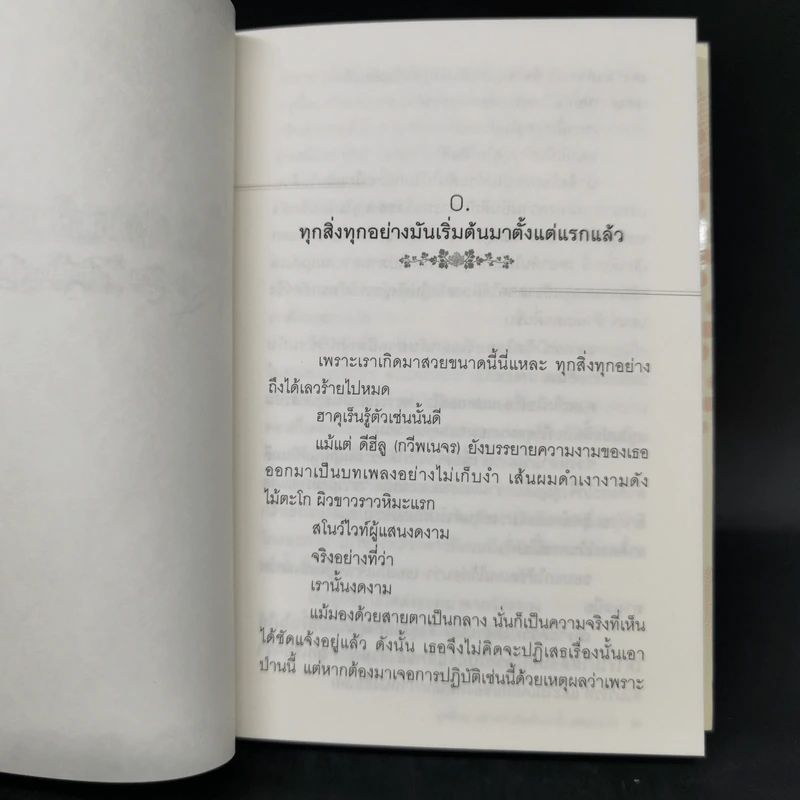 0.
ทุกสิ่งทุกอย่างมันเริ่มต้นมาตั้งแต่แรกแล้ว
เพราะเราเกิดมาสวยขนาดนี้นี่แหละ ทุกสิ่งทุกอย่าง
ถึงได้เลวร้ายไปหมด
ฮาคุเร็นรู้ตัวเช่นนั้นดี
แม้แต่ ดีฮีลู (กวีพเนจร) ยังบรรยายความงามของเธอ
ออกมาเป็นบทเพลงอย่างไม่เก็บงำ เส้นผมดำเงางามดัง
ไม้ตะโก ผิวขาวราวหิมะแรก
สโนว์ไวท์ผู้แสนงดงาม
จริงอย่างที่ว่า
เรานั้นงดงาม
แม้มองด้วยสายตาเป็นกลาง นั่นก็เป็นความจริงที่เห็น
ได้ชัดแจ้งอยู่แล้ว ดังนั้น เธอจึงไม่คิดจะปฏิเสธเรื่องนั้นเอา
ป่านนี้ แต่หากต้องมาเจอการปฏิบัติเช่นนี้ด้วยเหตุผลว่าเพราะ